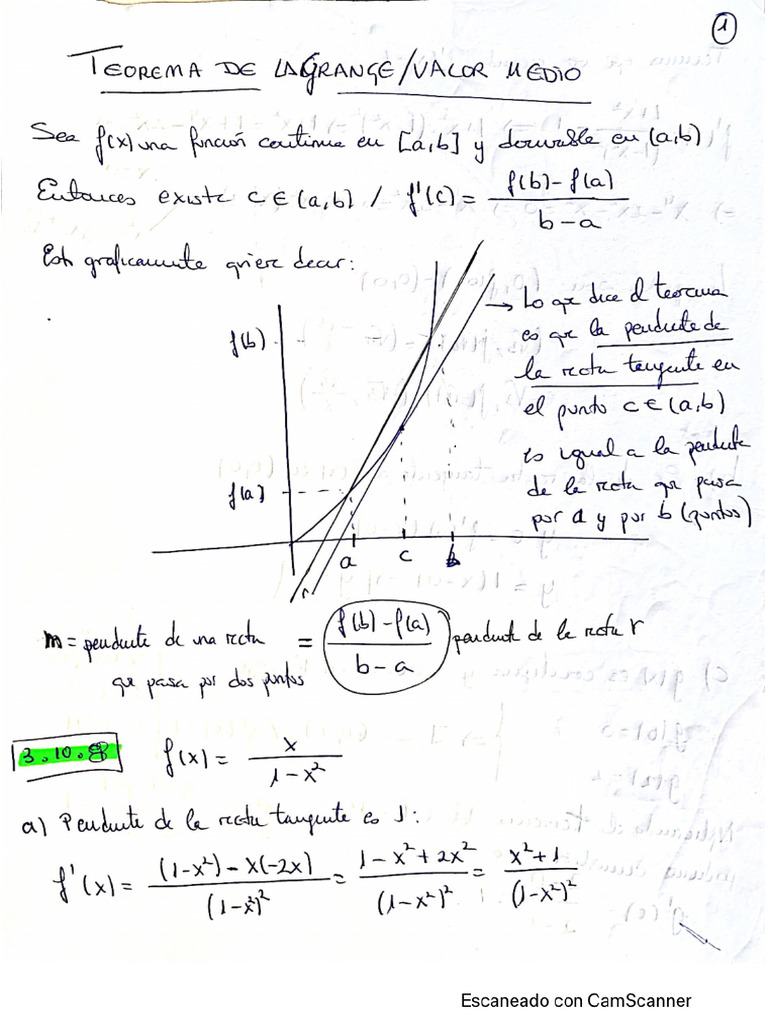 1
TEOREMA DE LAGRANGE/VALOR MEDIO
Sea f(x) una función continua en [a,b] y derivable en (a,b)
Entonces existe c ∈ (a,b) / f'(c) = (f(b) - f(a)) / (b - a)
Esto graficamente quiere decir:
→ Lo que dice el teorema
es que la pendiente de
la recta tangente en
el punto c ∈ (a,b)
es igual a la pendiente
de la recta que pasa
por a y por b (puntos)
f(b)
f(a)
a c b
r
m = pendiente de una recta que pasa por dos puntos = (f(b) - f(a)) / (b - a) pendiente de la recta r
3.10.8 f(x) = x / (1 - x²)
a) Pendiente de la recta tangente es 1:
f'(x) = ((1-x²) - x(-2x)) / (1-x²)² = (1 - x² + 2x²) / (1-x²)² = (x² + 1) / (1-x²)²
Escaneado con CamScanner